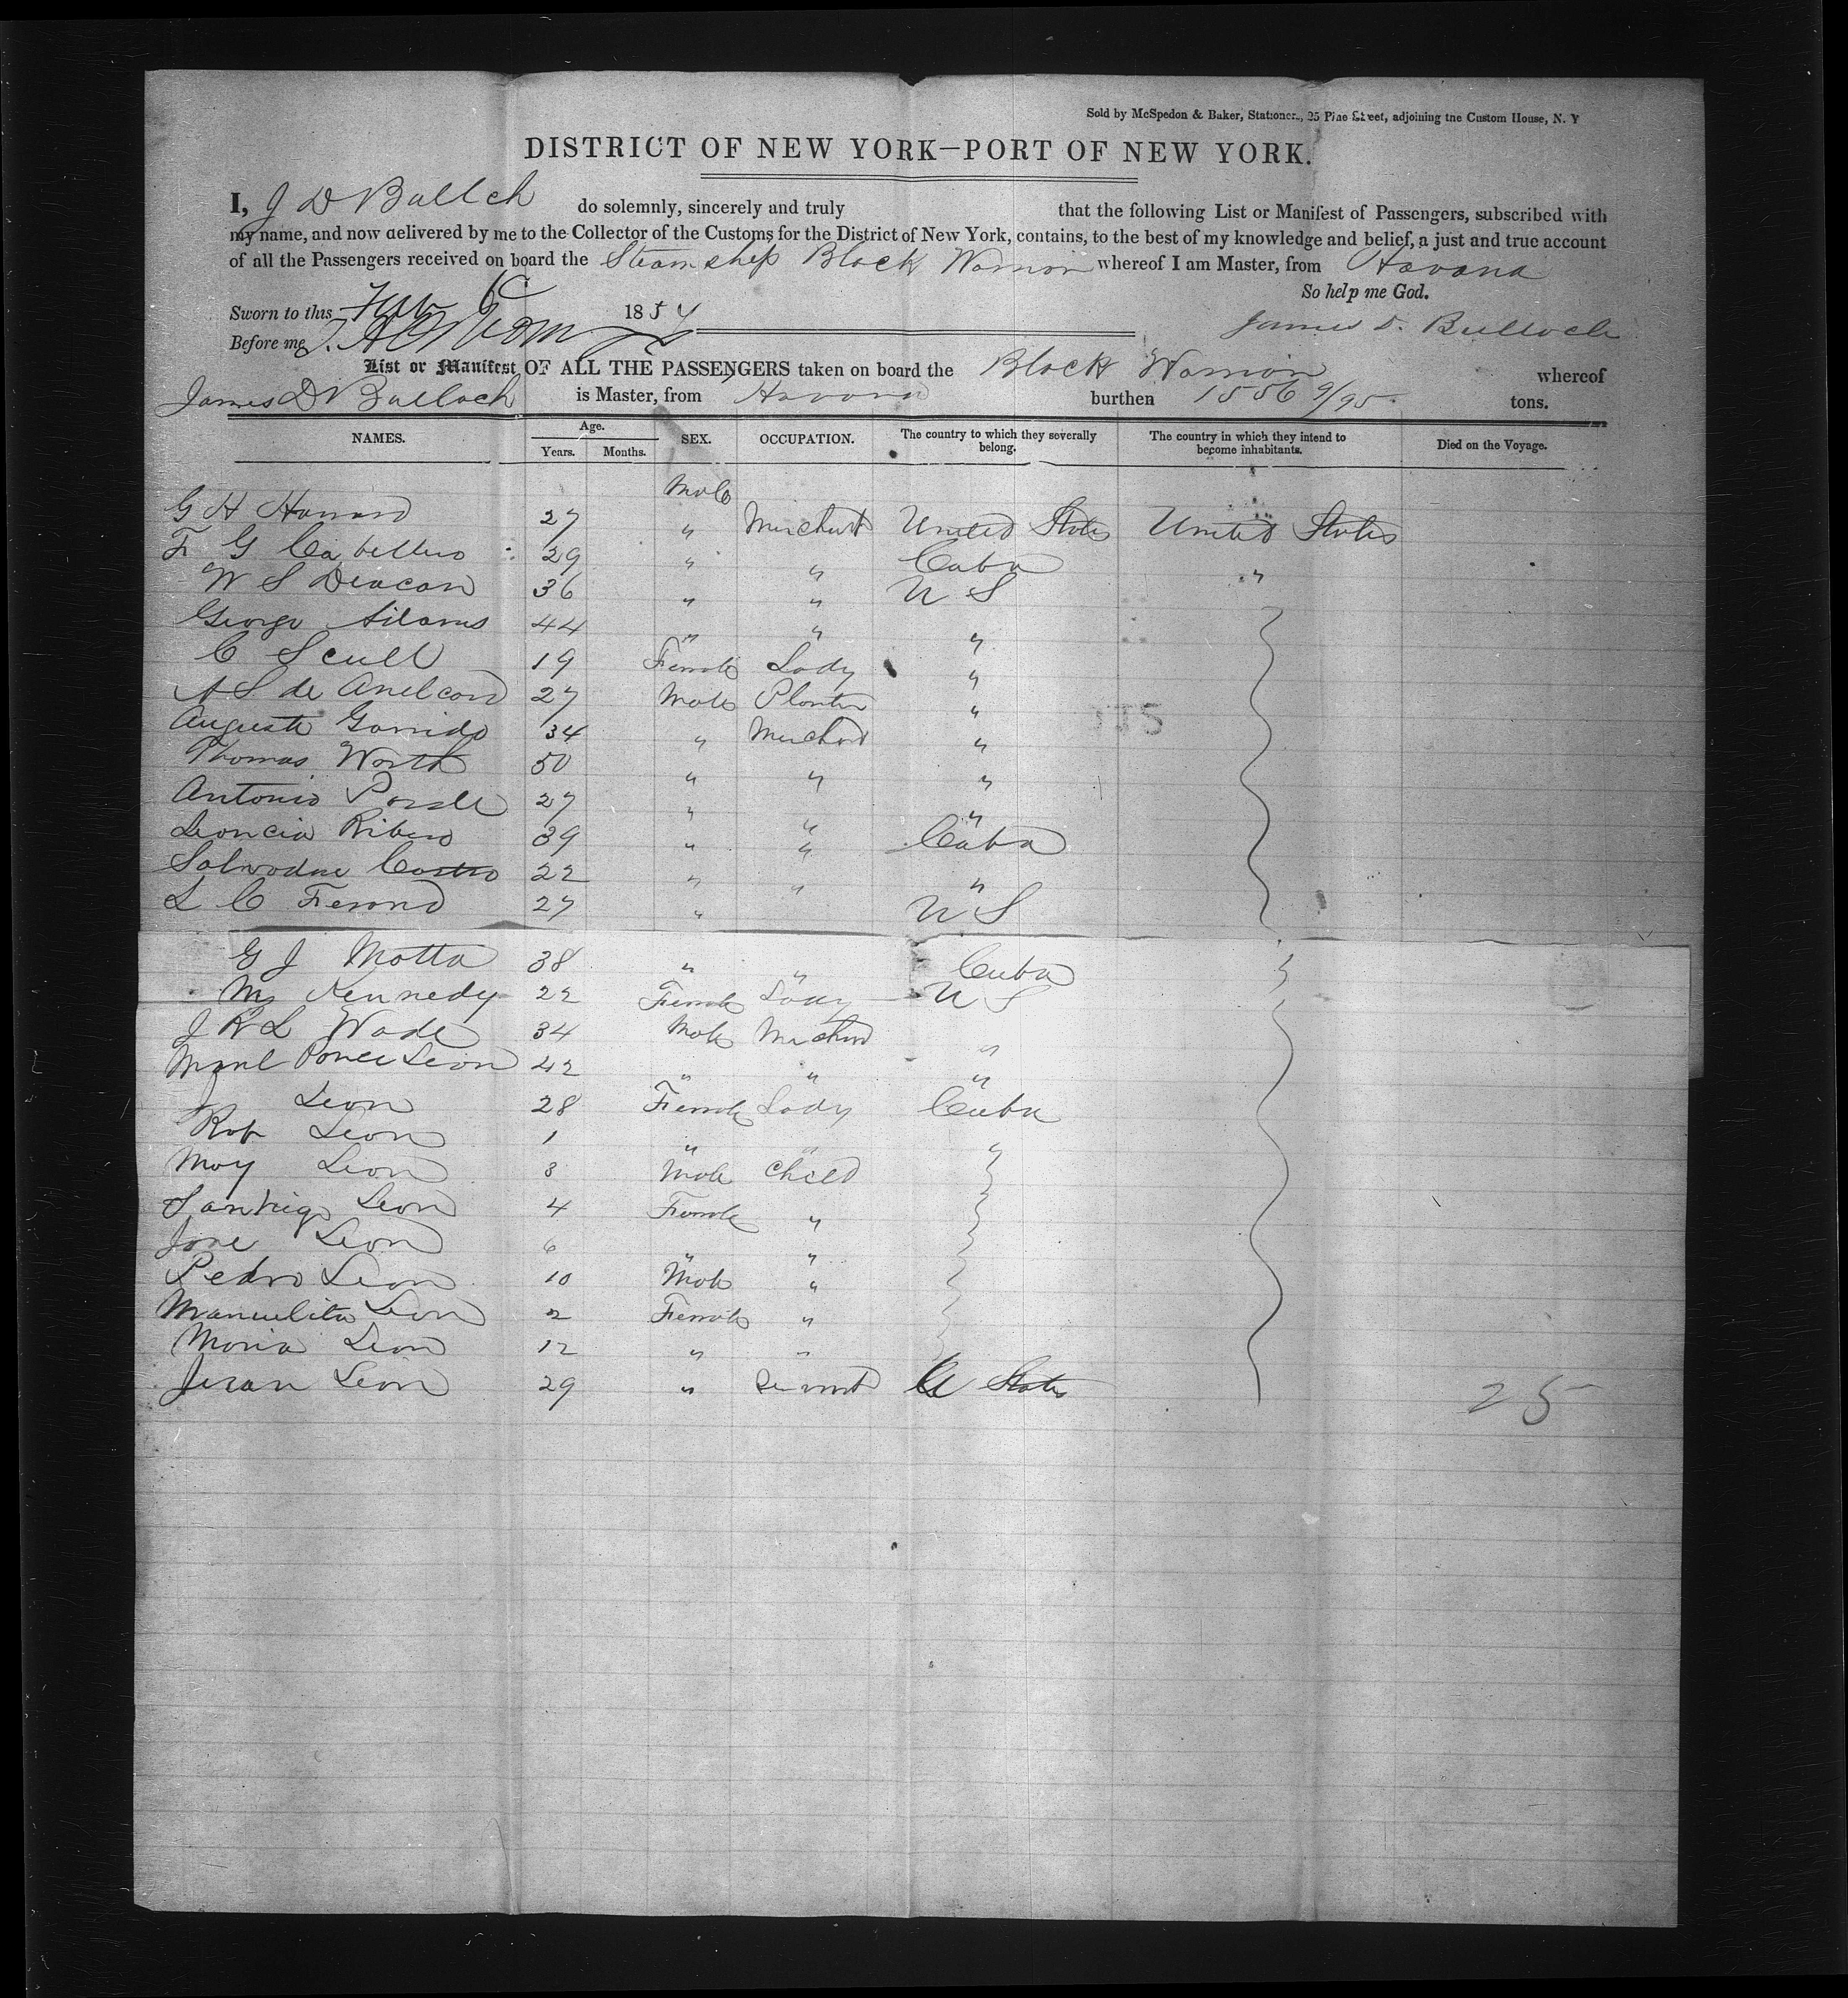 Sold by McSpedon & Baker, Stationers, 25 Pine Street, adjoining the Custom House, N. Y
DISTRICT OF NEW YORK—PORT OF NEW YORK.
I, J D Bulloch do solemnly, sincerely and truly that the following List or Manifest of Passengers, subscribed with
my name, and now delivered by me to the Collector of the Customs for the District of New York, contains, to the best of my knowledge and belief, a just and true account
of all the Passengers received on board the Steamship Black Warrior whereof I am Master, from Havana
So help me God.
Sworn to this 6 1854
James D. Bulloch
Before me
List or Manifest OF ALL THE PASSENGERS taken on board the Black Warrior whereof
James D Bulloch is Master, from Havana burthen 1556 9/95 tons.
NAMES. Age. Years. Months. SEX. OCCUPATION. The country to which they severally belong. The country in which they intend to become inhabitants. Died on the Voyage.
Male
G H Howard 27 " Merchant United States United States
F G Caballero 29 " " Cuba
W S Deacon 36 " " U S "
George Adams 44 " " "
C Scull 19 Female Lady "
A S de 27 Male Planter "
Auguste Garrido 34 " Merchant "
Thomas Worth 50 " " "
Antonio 27 " " "
Leoncia Ribero 39 " " Cuba
Salvador Castro 22 " " "
L C 27 " U S
G J Motta 38 " " Cuba
Ms Kennedy 22 Female Lady U S
J R L Wade 34 Male Merchant "
Manl Ponce Leon 42 " " "
J Leon 28 Female Lady Cuba
Rob Leon 1 " " "
May Leon 3 Male Child
Santiago Leon 4 Female "
Jose Leon 6 " "
Pedro Leon 10 Male "
Manuelita Leon 2 Female "
Maria Leon 12 " "
Leon 29 " Servant U States
25